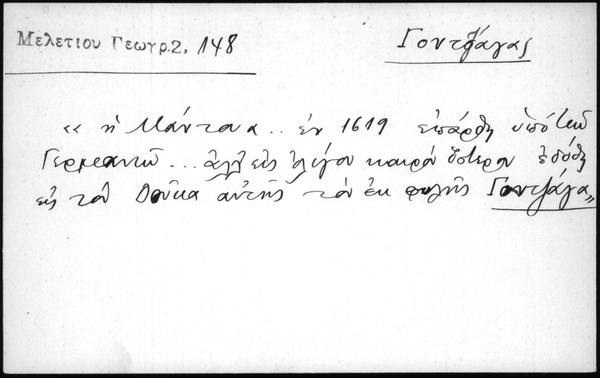 Μελετίου Γεωγρ.2, 148
Γοντζάγας
« ἡ Μάντοα .. ἐν 1619 ἐπάρθη ὑπὸ τῶν
Γερμανῶν ... ἀλλ' εἰς ὀλίγον καιρὸν ὕστερον ἐδόθη
εἰς τὸν Δοῦκα αὐτῆς τὸν ἐκ φυλῆς Γοντζάγα»